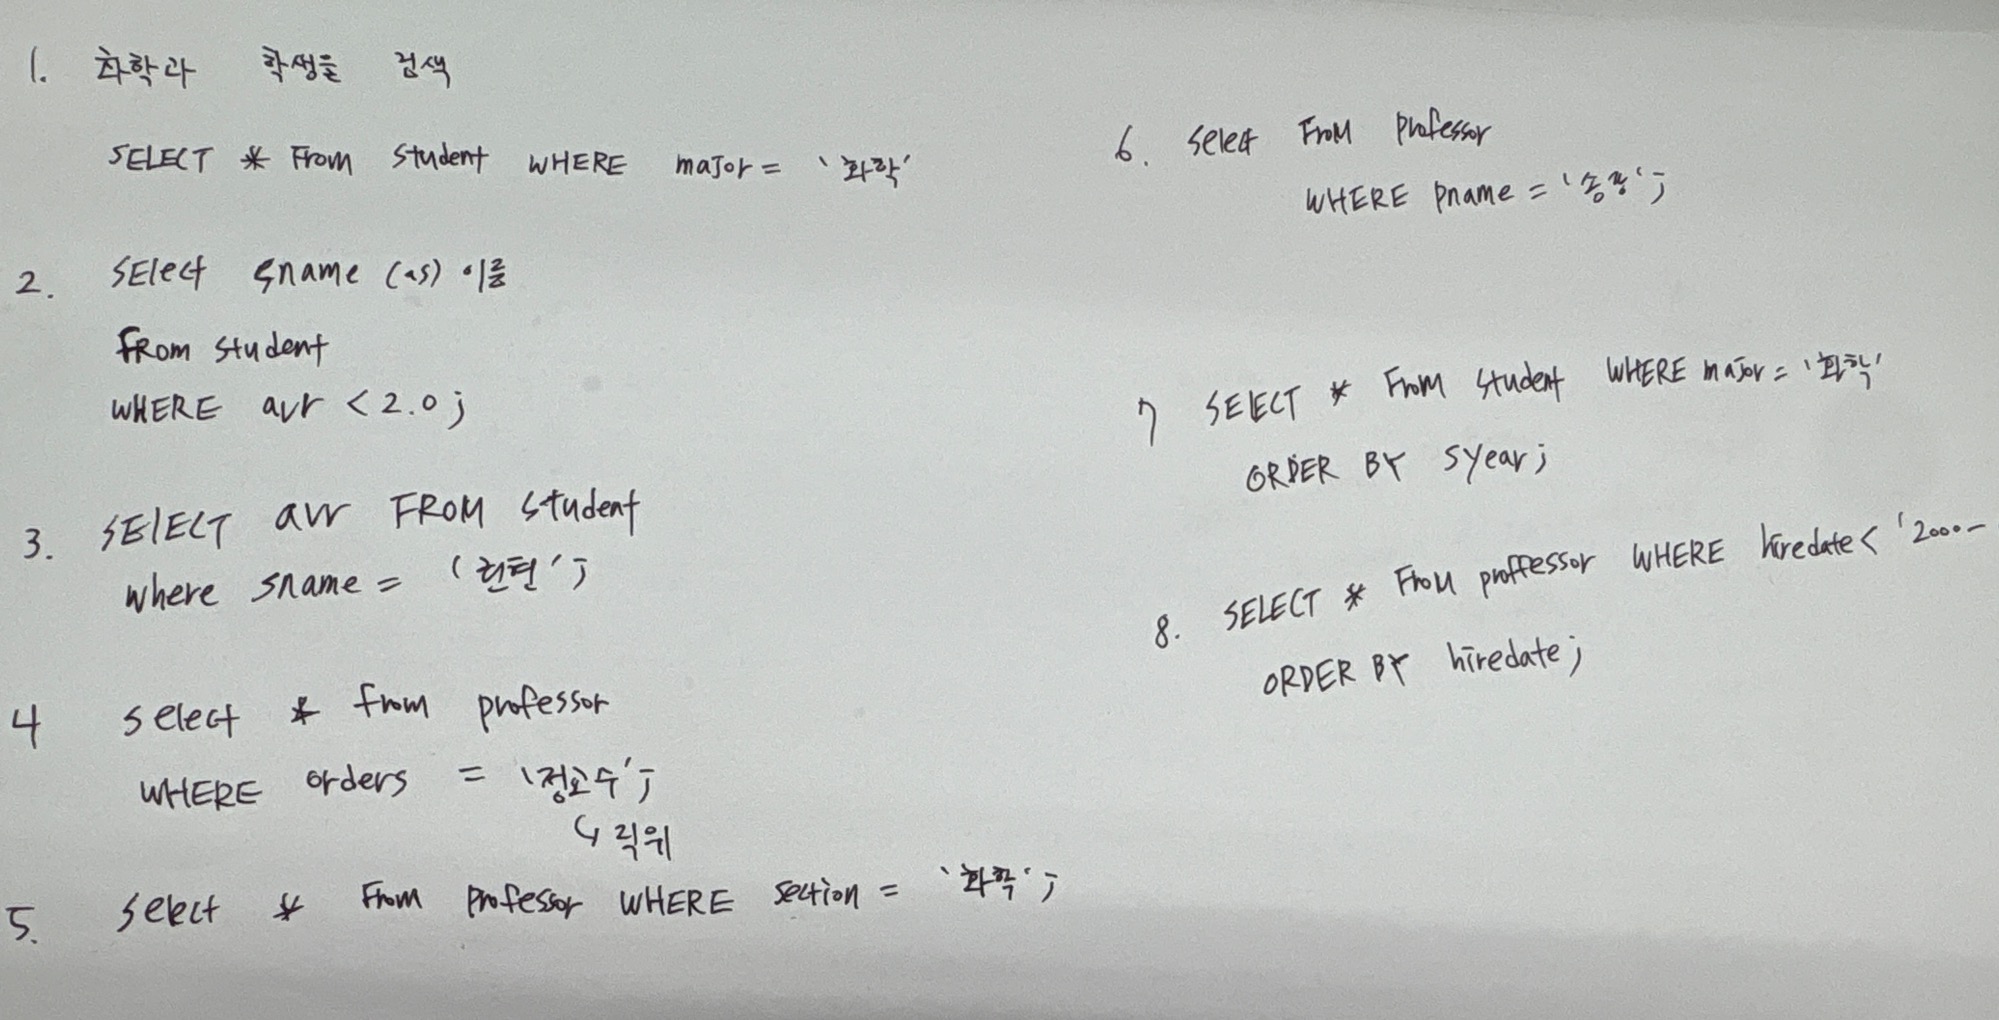 1. 화학과 학생을 검색
SELECT * From student WHERE major = '화학'
2. SElect sname (as) 이름
From student
WHERE avr < 2.0;
3. SElECT avr FROM student
where sname = '관평';
4 select * from professor
WHERE orders = '정교수';
↳ 직위
5. select * From professor WHERE section = '화학';
6. select From professor
WHERE pname = '송강';
7 SELECT * From student WHERE major = '화학'
ORDER BY syear;
8. SELECT * From proffessor WHERE hiredate < '2000-
ORDER BY hiredate;